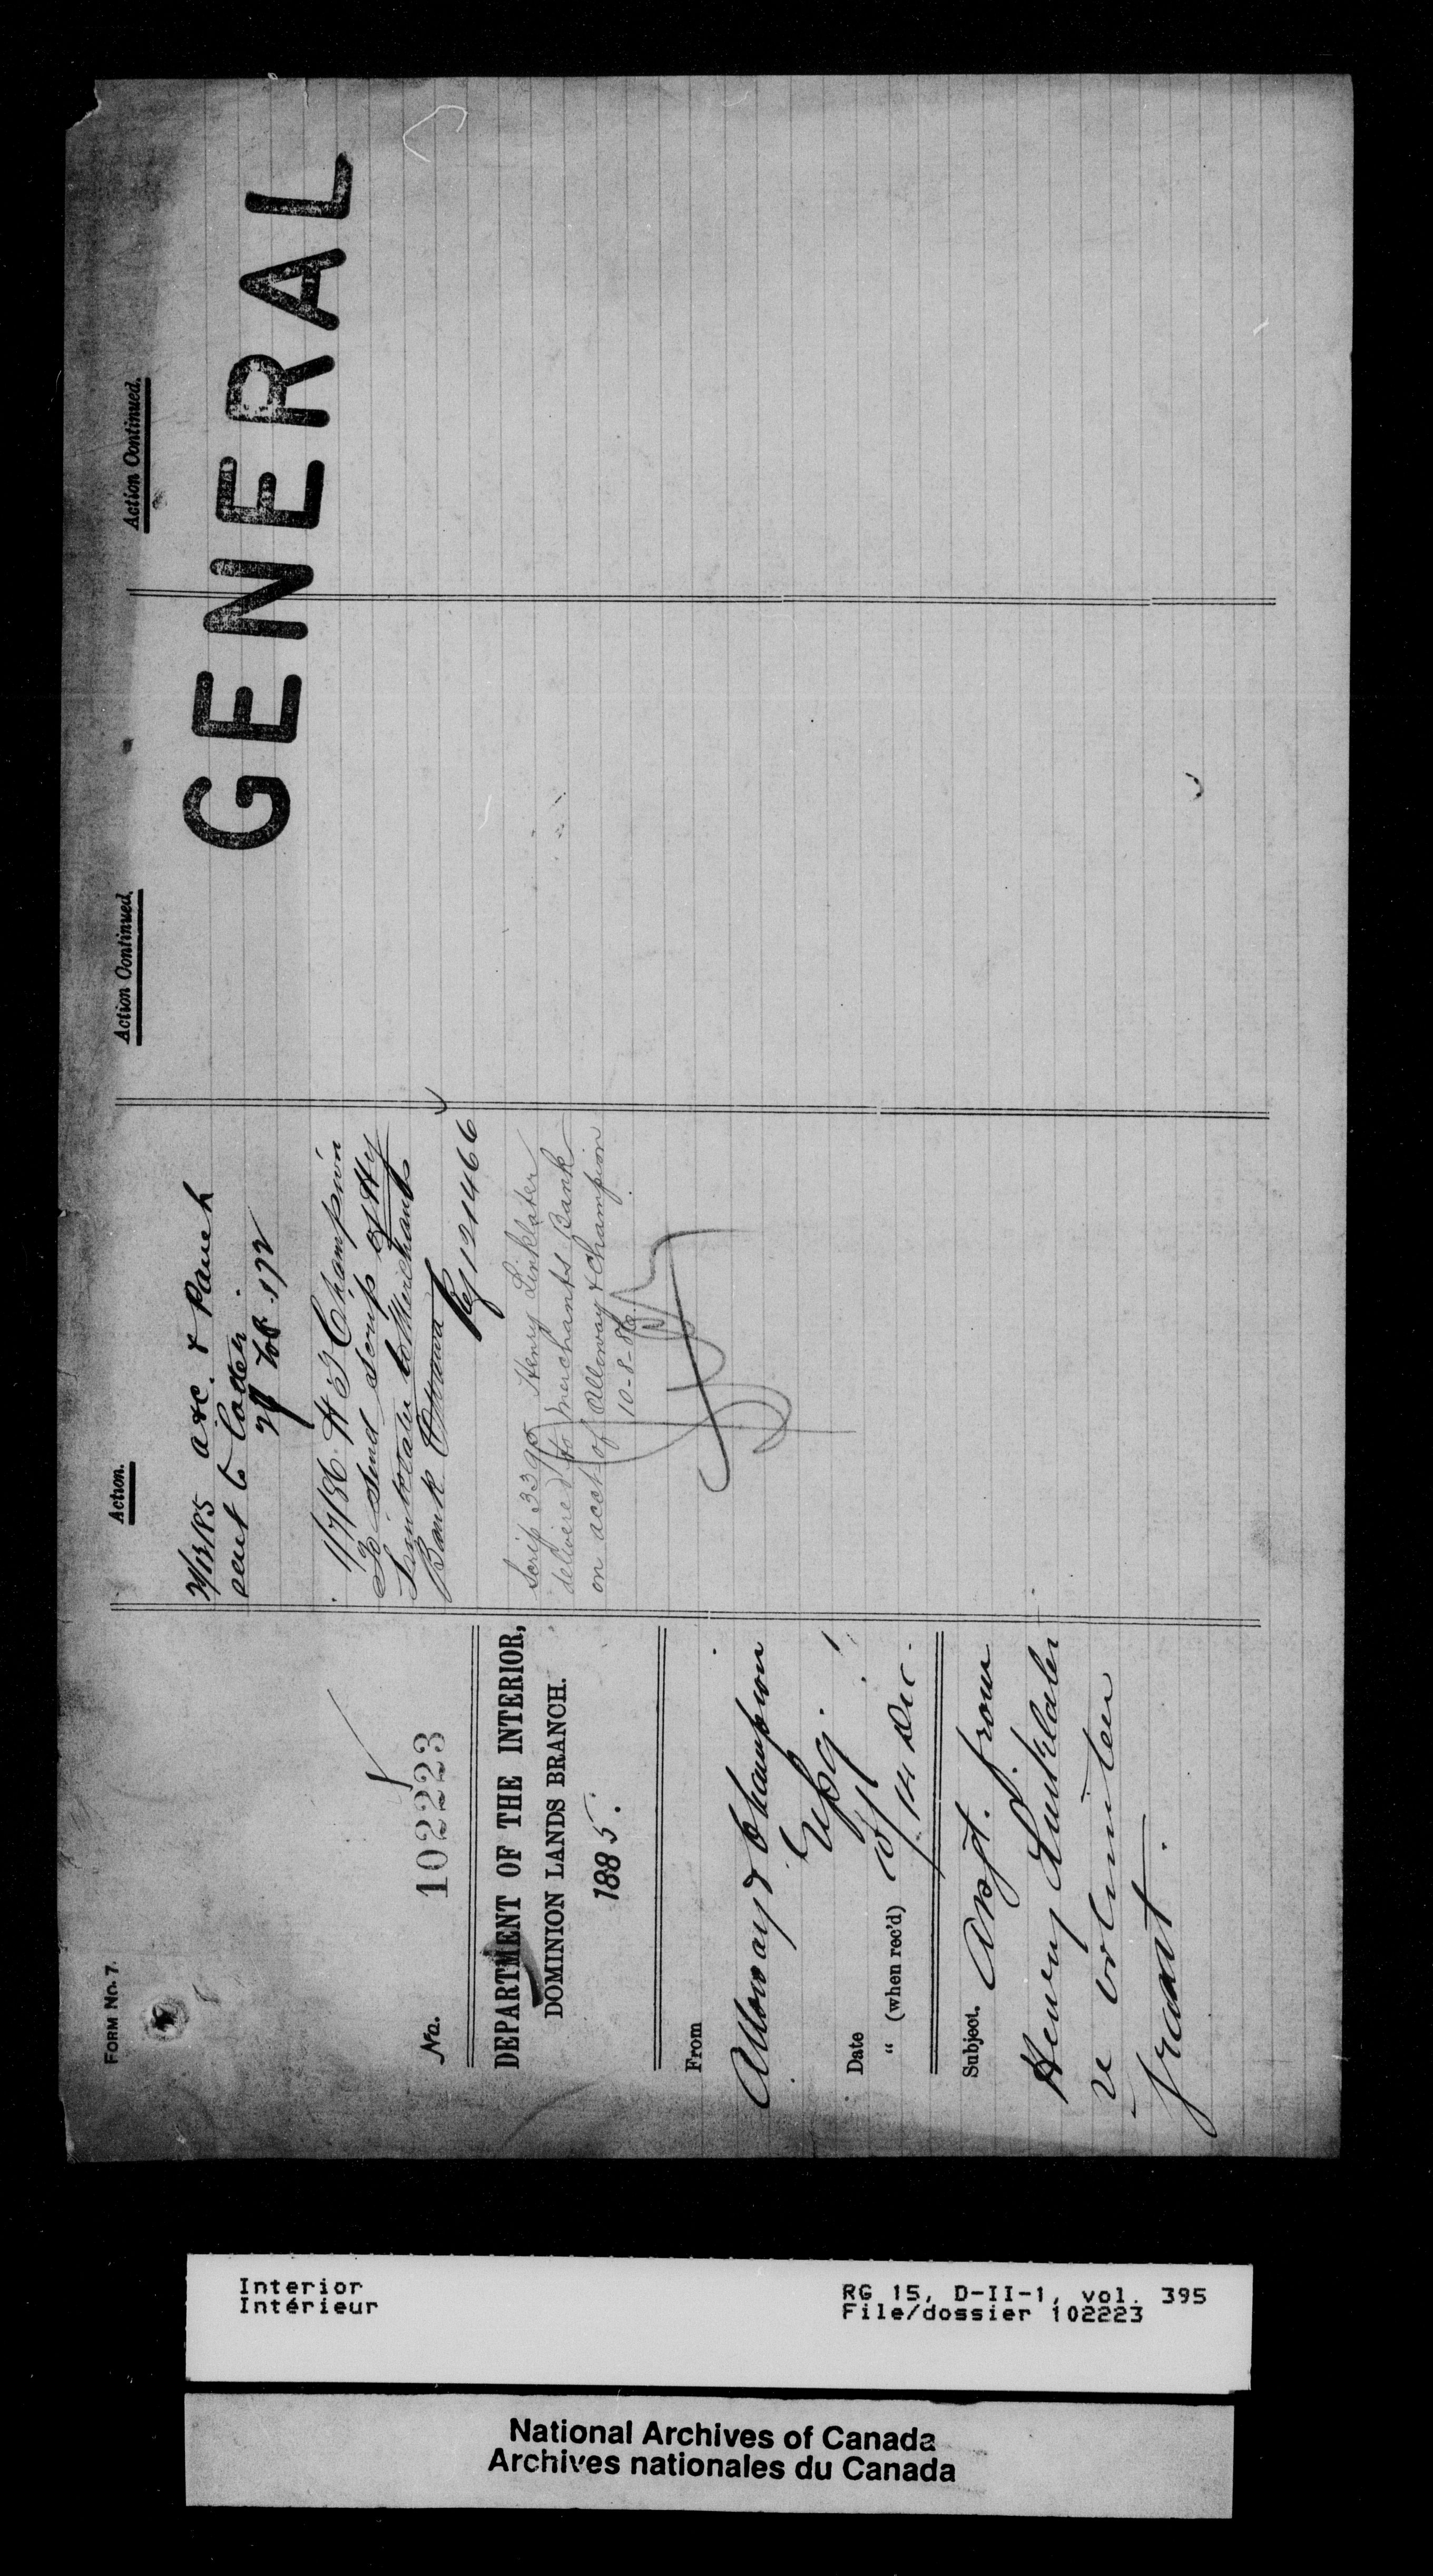 FORM No. 7.
No. 102223
DEPARTMENT OF THE INTERIOR,
DOMINION LANDS BRANCH.
1885.
From
Alloway & Champion
Wpg.
Date
" (when rec'd) 14 Dec.
Subject. Assgt. from
Henry Linklater
re volunteer
grant.
Action.
ack. &
sent to
172
1/7/86. Champion
To send scrip of Hy
Linklater to Merchants
Bank Ottawa
Ref 121466
Scrip 3390 Henry Linklater
delivered to Merchants Bank
on acct of Alloway & Champion
10-8-86.
Action Continued.
Action Continued.
GENERAL
Interior
Intérieur
RG 15, D-II-1, vol. 395
File/dossier 102223
National Archives of Canada
Archives nationales du Canada